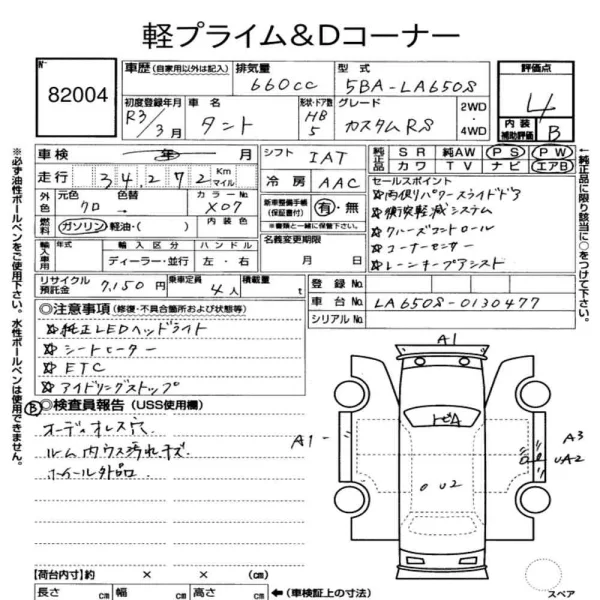 軽プライム&Dコーナー
No 82004
車歴 (自家用以外は記入) 排気量 660cc 型式 5BA-LA650S 評価点 4
初度登録年月 R3/3月 車名 タント 形状・ドア数 HB 5 グレード カスタムRS 2WD・4WD 内装補助評価 B
車検 年 月 シフト IAT 純正品 SR 純AW PS PW
カワ TV ナビ エアB
走行 34,272 Km マイル 冷房 AAC
セールスポイント
外色 元色 クロ 色替 → カラーNo X07
新車整備手帳(保証書付) 有・無
※書類と一緒に保管して下さい。
燃料 ガソリン・軽油・( ) 内装色
☆両側パワースライドドア
☆衝突軽減システム
☆クルーズコントロール
☆コーナーセンサー
☆レーンキープアシスト
輸入車用 年式 輸入区分 ディーラー・並行 ハンドル 左・右
名義変更期限 月 日
リサイクル預託金 7,150円 乗車定員 4人 積載量 t
登録No.
車台No. LA650S-0130477
シリアルNo.
◎注意事項 (修復・不具合箇所および状態等)
☆純正LEDヘッドライト
☆シートヒーター
☆ETC
☆アイドリングストップ
Ⓑ◎検査員報告 (USS使用欄)
オーディオレス穴
ルーム内ウス汚れキズ
ホイール外品
A1
A1
トビA
A3
UA2
U2
スペア
【荷台内寸】約 × × (cm)
長さ cm 幅 cm 高さ cm ←(車検証上の寸法)
※必ず油性ボールペンをご使用下さい。水性ボールペンは使用できません。
←純正品に限り該当に○をつけて下さい。